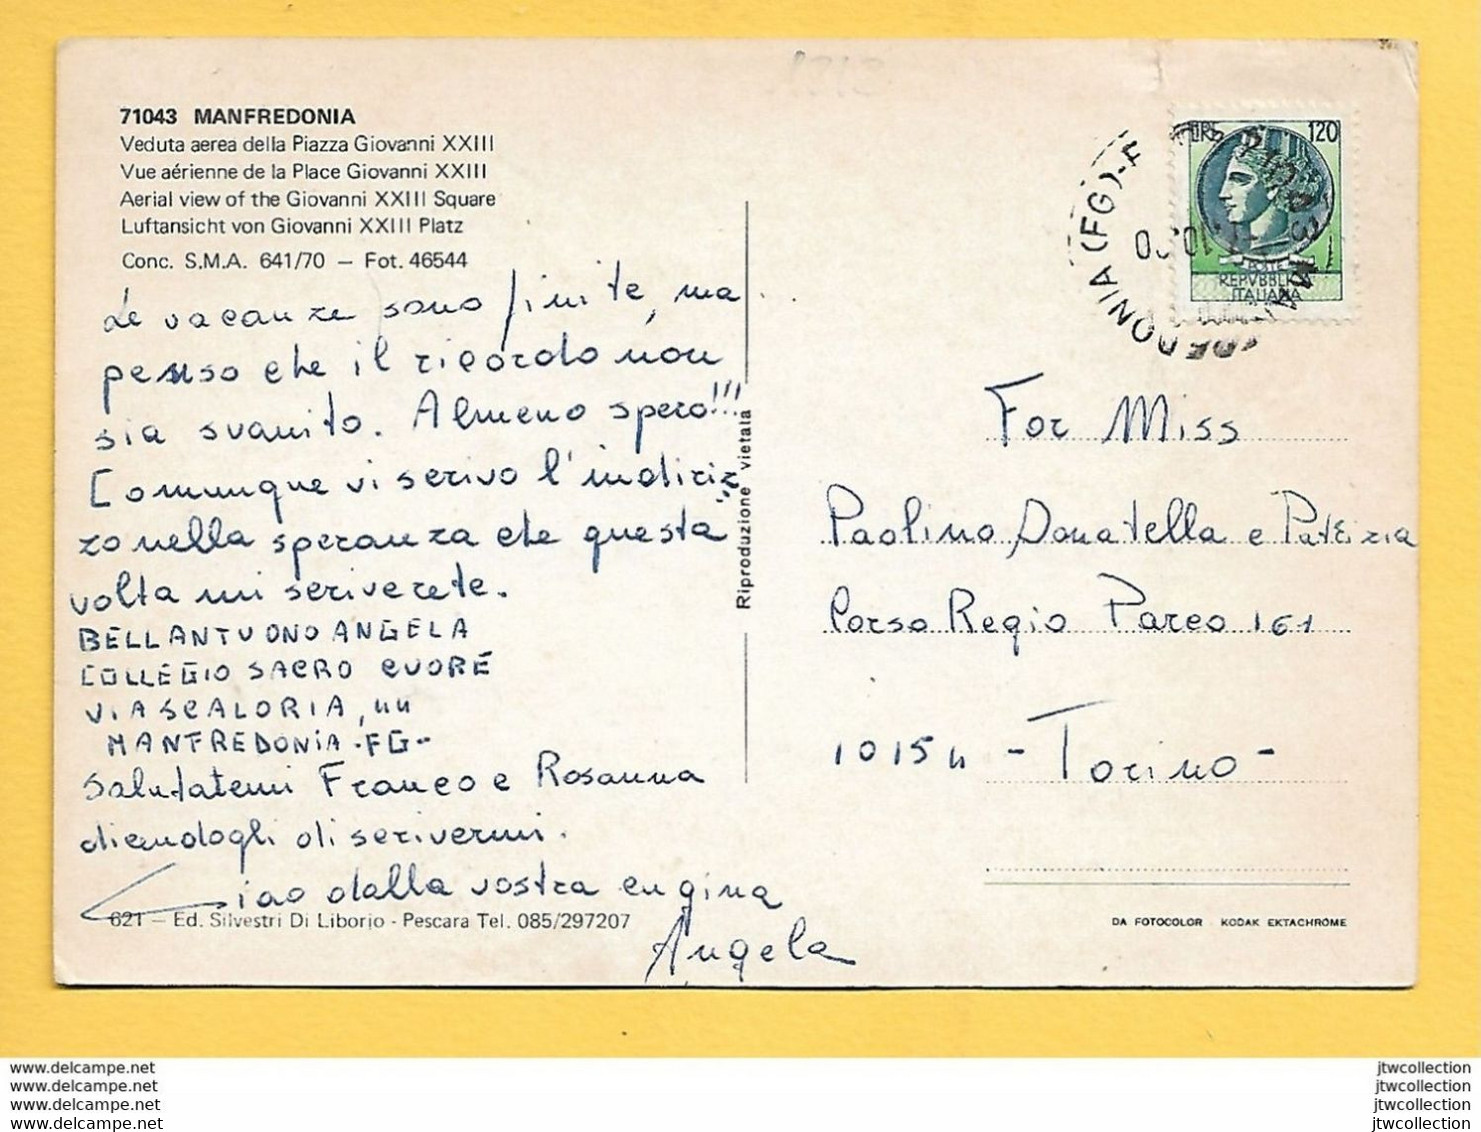 71043 MANFREDONIA
Veduta aerea della Piazza Giovanni XXIII
Vue aérienne de la Place Giovanni XXIII
Aerial view of the Giovanni XXIII Square
Luftansicht von Giovanni XXIII Platz
Conc. S.M.A. 641/70 — Fot. 46544
Le vacanze sono finite, ma
penso che il ricordo non
sia svanito. Almeno spero!!!
Comunque vi scrivo l'indiriz
zo nella speranza che questa
volta mi scriverete.
BELLANTUONO ANGELA
COLLEGIO SACRO CUORE
VIA SCALORIA, 44
MANFREDONIA -FG-
Salutatemi Franco e Rosanna
dicendogli di scrivermi.
Ciao dalla vostra cugina
Angela
621 — Ed. Silvestri Di Liborio - Pescara Tel. 085/297207
Riproduzione vietata
LIRE 120
POSTE
REPVBBLICA
ITALIANA
For Miss
Paolino Donatella e Patrizia
Corso Regio Parco 161
10154 - Torino -
DA FOTOCOLOR KODAK EKTACHROME
www.delcampe.net
www.delcampe.net
www.delcampe.net
www.delcampe.net
jtwcollection
jtwcollection
jtwcollection
jtwcollection